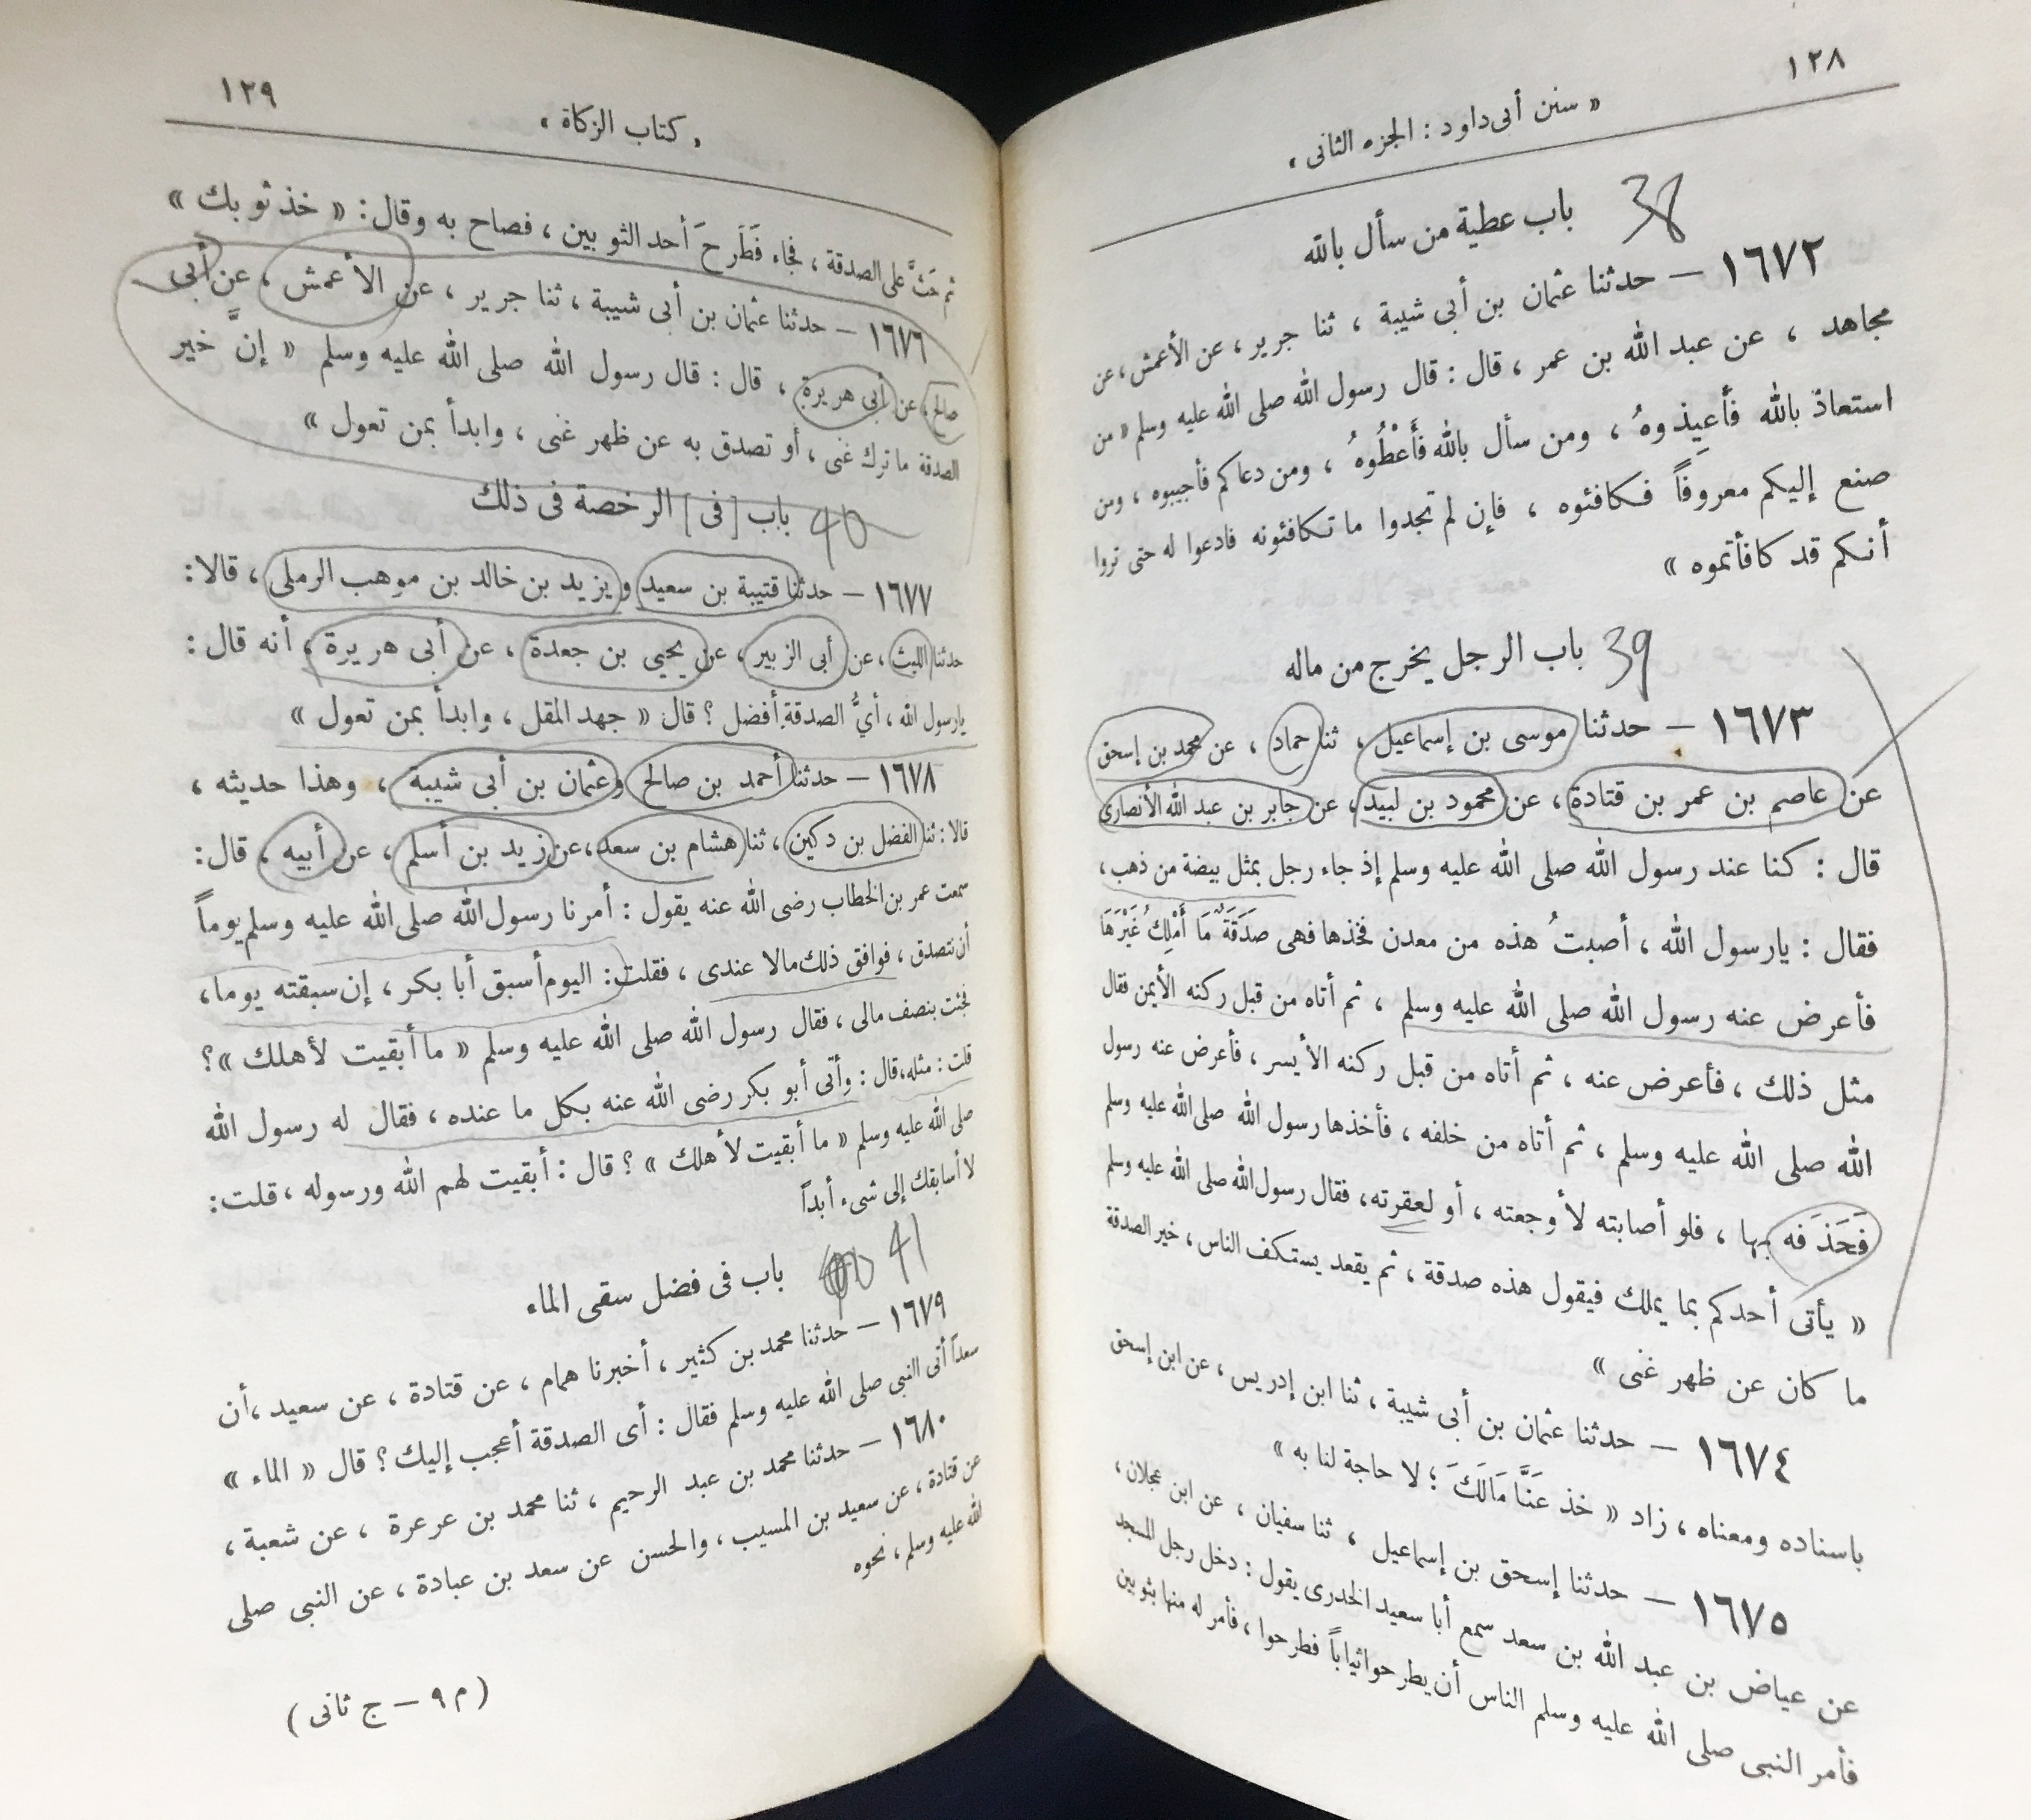 ١٢٨
« سنن أبى داود : الجزء الثانى »
38
باب عطية من سأل بالله
١٦٧٢ — حدثنا عثمان بن أبى شيبة ، ثنا جرير ، عن الأعمش ، عن
مجاهد ، عن عبد الله بن عمر ، قال : قال رسول الله صلى الله عليه وسلم « من
استعاذ بالله فأعِيذوهُ ، ومن سأل بالله فَأَعْطُوهُ ، ومن دعاكم فأجيبوه ، ومن
صنع إليكم معروفاً فكافئوه ، فإن لم تجدوا ما تكافئونه فادعوا له حتى تروا
أنكم قد كافأتموه »
39 باب الرجل يخرج من ماله
١٦٧٣ — حدثنا موسى بن إسماعيل ، ثنا حماد ، عن محمد بن إسحق
عن عاصم بن عمر بن قتادة ، عن محمود بن لبيد ، عن جابر بن عبد الله الأنصارى
قال : كنا عند رسول الله صلى الله عليه وسلم إذ جاء رجل بمثل بيضة من ذهب ،
فقال : يارسول الله ، أصبتُ هذه من معدن فخذها فهى صَدَقَةٌ مَا أَمْلِكُ غَيْرَهَا
فأعرض عنه رسول الله صلى الله عليه وسلم ، ثم أتاه من قبل ركنه الأيمن فقال
مثل ذلك ، فأعرض عنه ، ثم أتاه من قبل ركنه الأيسر ، فأعرض عنه رسول
الله صلى الله عليه وسلم ، ثم أتاه من خلفه ، فأخذها رسول الله صلى الله عليه وسلم
فَحَذَفه بها ، فلو أصابته لأوجعته ، أو لعقرته ، فقال رسول الله صلى الله عليه وسلم
« يأتى أحدكم بما يملك فيقول هذه صدقة ، ثم يقعد يستكف الناس ، خير الصدقة
ما كان عن ظهر غنى »
١٦٧٤ — حدثنا عثمان بن أبى شيبة ، ثنا ابن إدريس ، عن ابن إسحق
باسناده ومعناه ، زاد « خذ عَنَّا مَالَكَ ؛ لا حاجة لنا به »
١٦٧٥ — حدثنا إسحق بن إسماعيل ، ثنا سفيان ، عن ابن عجلان ،
عن عياض بن عبد الله بن سعد سمع أبا سعيد الخدرى يقول : دخل رجل المسجد
فأمر النبى صلى الله عليه وسلم الناس أن يطرحوا ثياباً فطرحوا ، فأمر له منها بثوبين
١٢٩
« كتاب الزكاة »
ثم حَثَّ على الصدقة ، فجاء فَطَرحَ أحد الثوبين ، فصاح به وقال : « خذ ثوبك »
١٦٧٦ — حدثنا عثمان بن أبى شيبة ، ثنا جرير ، عن الأعمش ، عن أبى
صالح ، عن أبى هريرة ، قال : قال رسول الله صلى الله عليه وسلم « إنَّ خير
الصدقة ما ترك غنى ، أو تصدق به عن ظهر غنى ، وابدأ بمن تعول »
40 باب [ فى ] الرخصة فى ذلك
١٦٧٧ — حدثنا قتيبة بن سعيد ويزيد بن خالد بن موهب الرملى ، قالا :
حدثنا الليث ، عن أبى الزبير ، عن يحيى بن جعدة ، عن أبى هريرة ، أنه قال :
يارسول الله ، أىُّ الصدقة أفضل ؟ قال « جهد المقل ، وابدأ بمن تعول »
١٦٧٨ — حدثنا أحمد بن صالح وعثمان بن أبى شيبة ، وهذا حديثه ،
قالا : ثنا الفضل بن دكين ، ثنا هشام بن سعد ، عن زيد بن أسلم ، عن أبيه ، قال :
سمعت عمر بن الخطاب رضى الله عنه يقول : أمرنا رسول الله صلى الله عليه وسلم يوماً
أن نتصدق ، فوافق ذلك مالا عندى ، فقلت : اليوم أسبق أبا بكر ، إن سبقته يوما ،
فجئت بنصف مالى ، فقال رسول الله صلى الله عليه وسلم « ما أبقيت لأهلك » ؟
قلت : مثله ، قال : وأتى أبو بكر رضى الله عنه بكل ما عنده ، فقال له رسول الله
صلى الله عليه وسلم « ما أبقيت لأهلك » ؟ قال : أبقيت لهم الله ورسوله ، قلت :
لا أسابقك إلى شىء أبداً
41 باب فى فضل سقى الماء
١٦٧٩ — حدثنا محمد بن كثير ، أخبرنا همام ، عن قتادة ، عن سعيد ، أن
سعداً أتى النبى صلى الله عليه وسلم فقال : أى الصدقة أعجب إليك ؟ قال « الماء »
١٦٨٠ — حدثنا محمد بن عبد الرحيم ، ثنا محمد بن عرعرة ، عن شعبة ،
عن قتادة ، عن سعيد بن المسيب ، والحسن عن سعد بن عبادة ، عن النبى صلى
الله عليه وسلم ، نحوه
( م ٩ — ج ثانى )